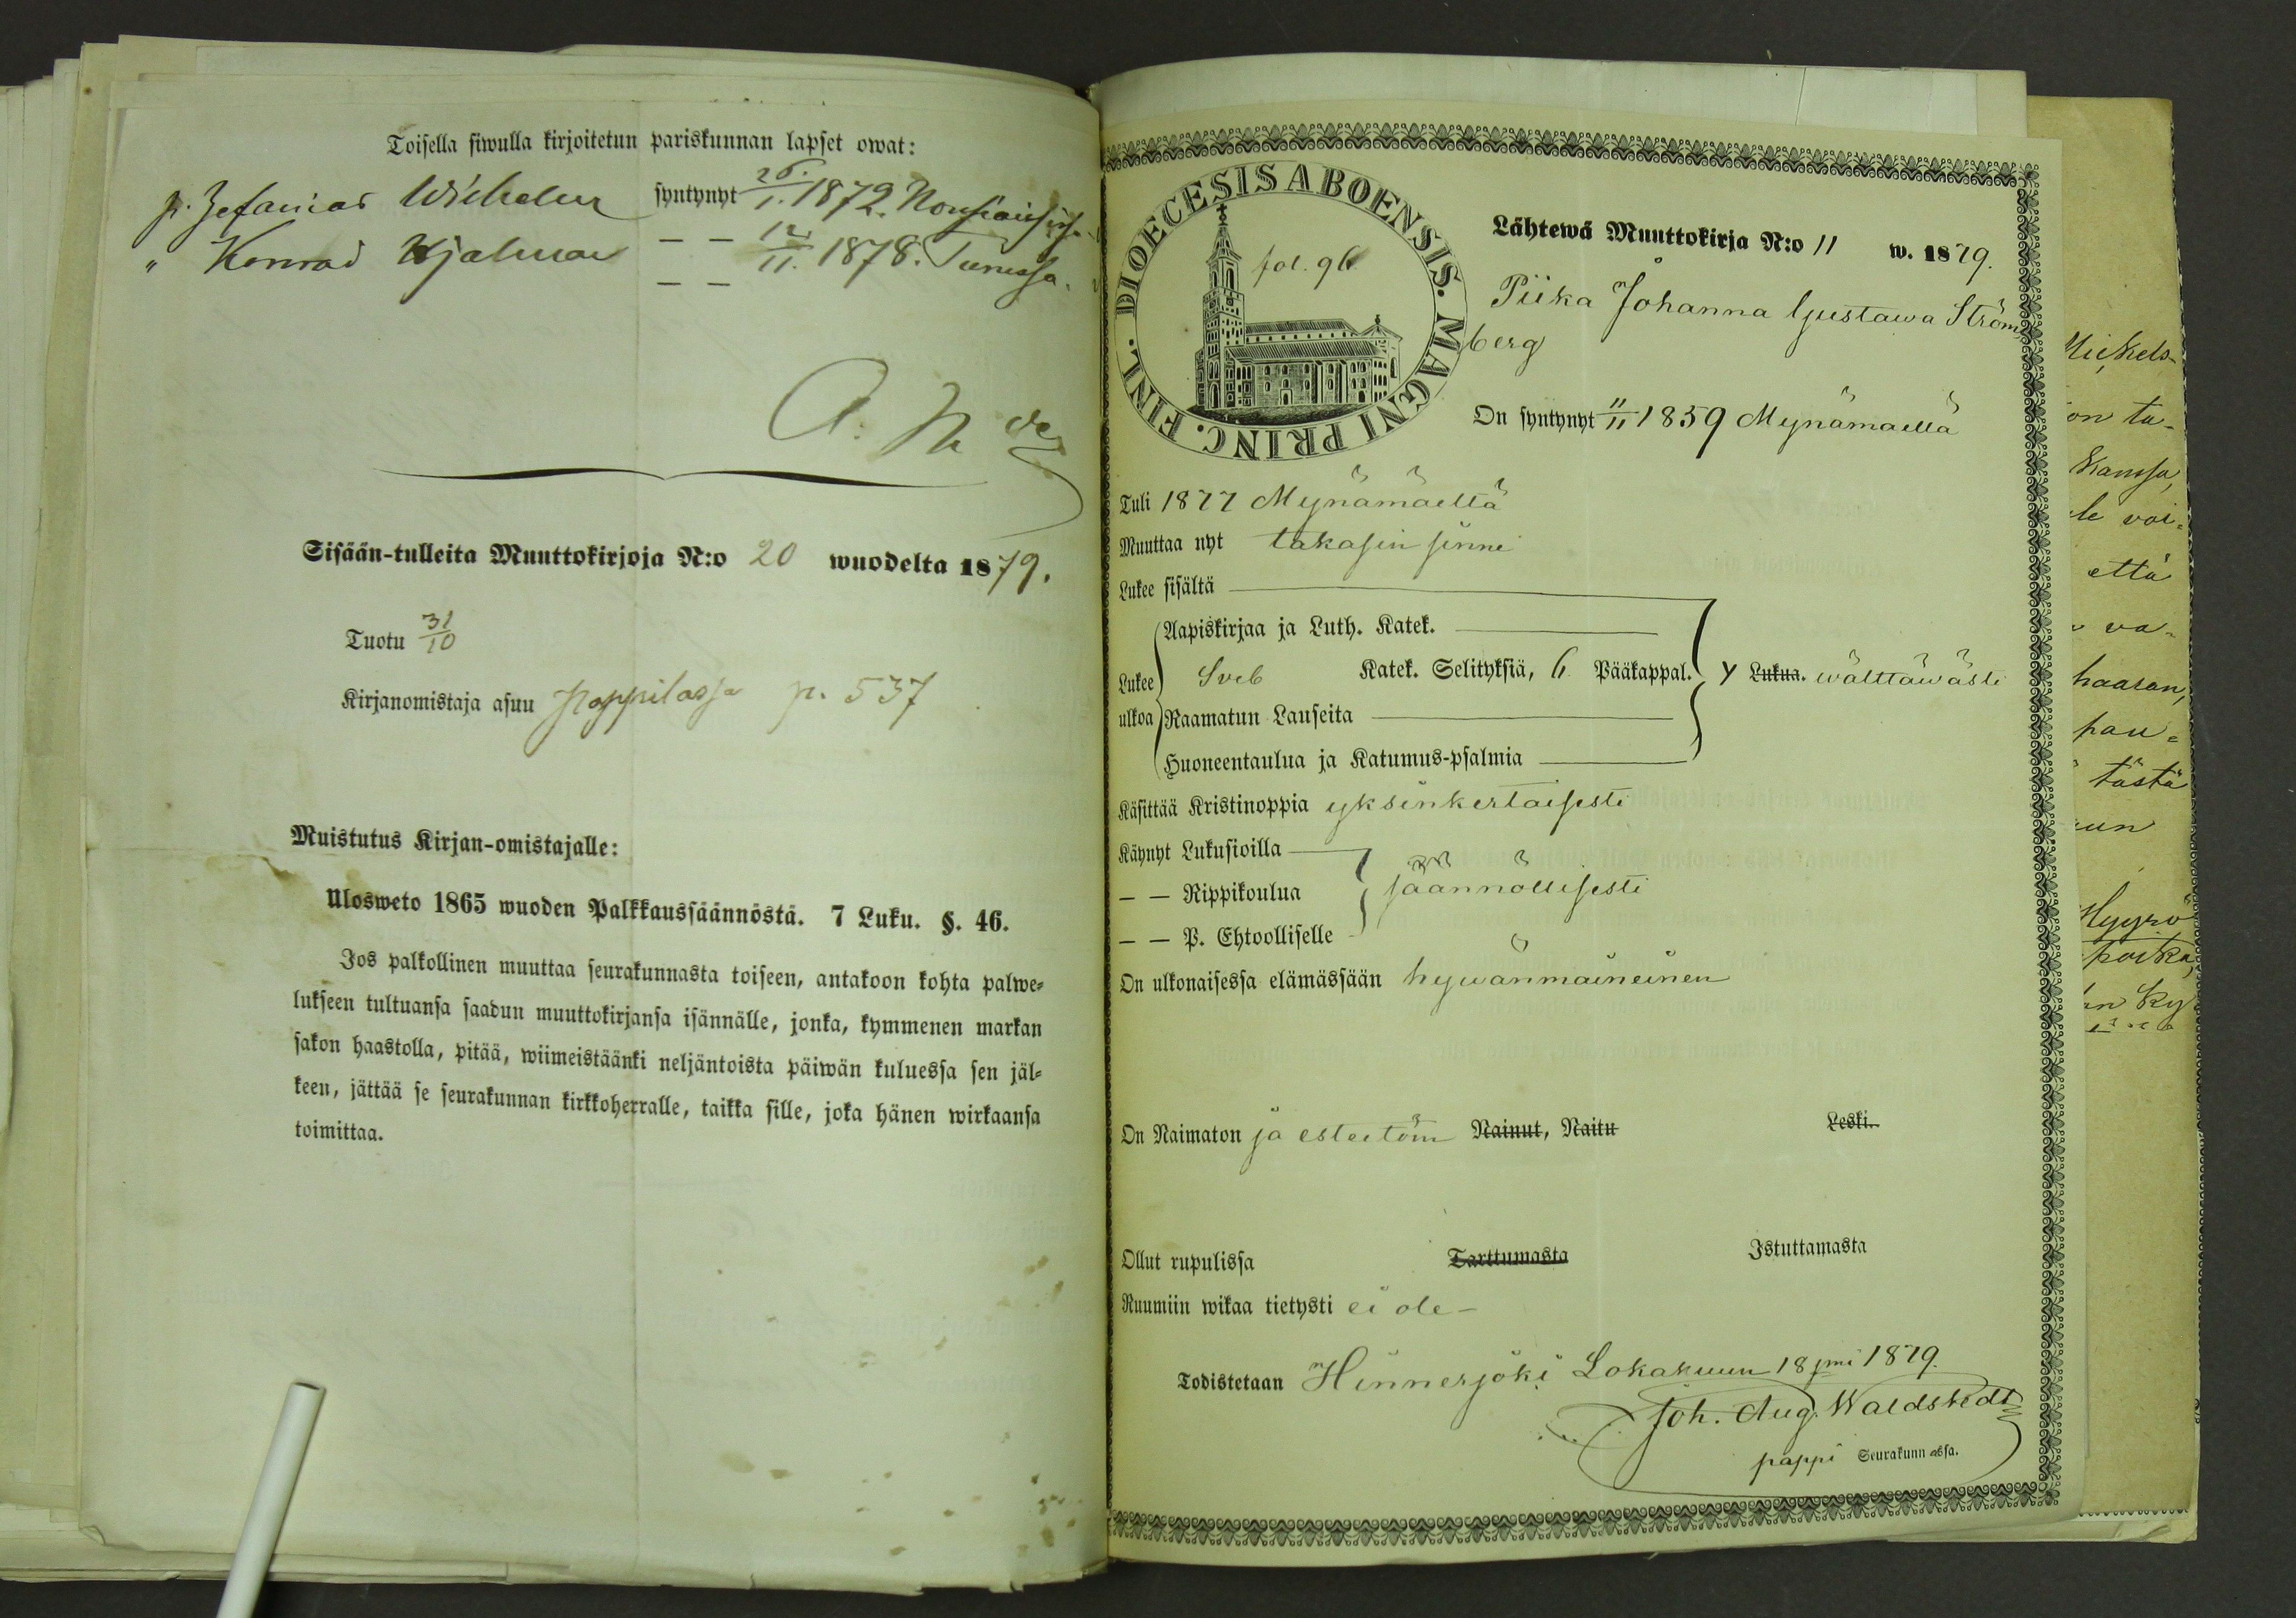 Toisella siwulla kirjoitetun pariskunnan lapset owat:
p. Zefanias Wilhelm syntynyt 26/1. 1872. Nousiaisissa.
" Konrad Hjalmar — — 12/11. 1878. Turussa.
— —
Sisään-tulleita Muuttokirjoja N:o 20 wuodelta 1879.
Tuotu 31/10
Kirjanomistaja asuu Pappilassa p. 537
Muistutus Kirjan-omistajalle:
Ulosweto 1865 wuoden Palkkaussäännöstä. 7 Luku. §. 46.
Jos palkollinen muuttaa seurakunnasta toiseen, antakoon kohta palwe-
lukseen tultuansa saadun muuttokirjansa isännälle, jonka, kymmenen markan
sakon haastolla, pitää, wiimeistäänki neljäntoista päiwän kuluessa sen jäl-
keen, jättää se seurakunnan kirkkoherralle, taikka sille, joka hänen wirkaansa
toimittaa.
DIOECESIS ABOENSIS. MAGNI PRINC. FINL.
fol. 96
Lähtewä Muuttokirja N:o 11 w. 1879.
Piika Johanna Gustawa Ström
berg
On syntynyt 11/11 1859 Mynämäellä
Tuli 1877 Mynämäeltä
Muuttaa nyt takasin sinne
Lukee sisältä
Aapiskirjaa ja Luth. Katek.
Lukee Sveb Katek. Selityksiä, 6 Pääkappal. Y Lukua. wälttäwästi
ulkoa Raamatun Lauseita
Huoneentaulua ja Katumus-psalmia
Käsittää Kristinoppia yksinkertaisesti
Käynyt Lukusioilla
— — Rippikoulua säännöllisesti
— — P. Ehtoolliselle
On ulkonaisessa elämässään hywänmaineinen
On Naimaton ja esteetöin Nainut, Naitu Leski.
Ollut rupulissa Tarttumasta Istuttamasta
Ruumiin wikaa tietysti ei ole —
Todistetaan Hinnerjoki Lokakuun 18 pnä 1879.
Joh. Aug. Waldstedt
pappi Seurakunnassa.
on ta-
kanssa,
että
va-
haaran,
tästä
poika,